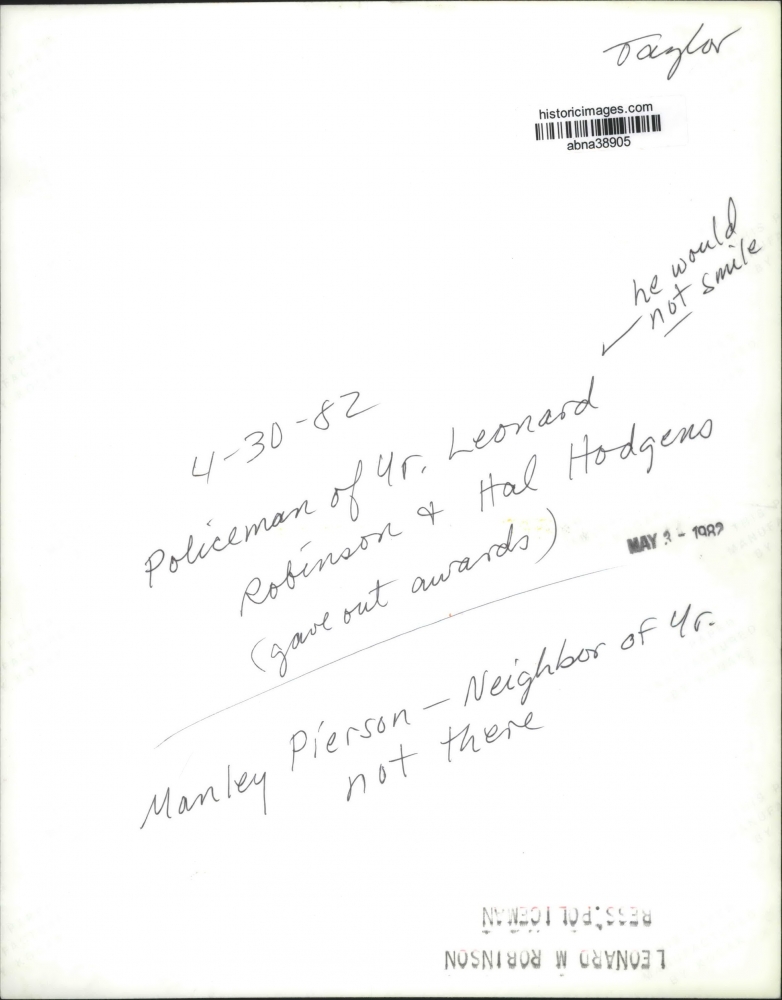 Taylor
historicimages.com
abna38905
he would
not smile
4-30-82
Policeman of Yr. Leonard
Robinson & Hal Hodgens
(gave out awards)
MAY 3 - 1982
Manley Pierson - Neighbor of Yr.
not there
RESS, POLICEMAN
LEONARD M ROBINSON